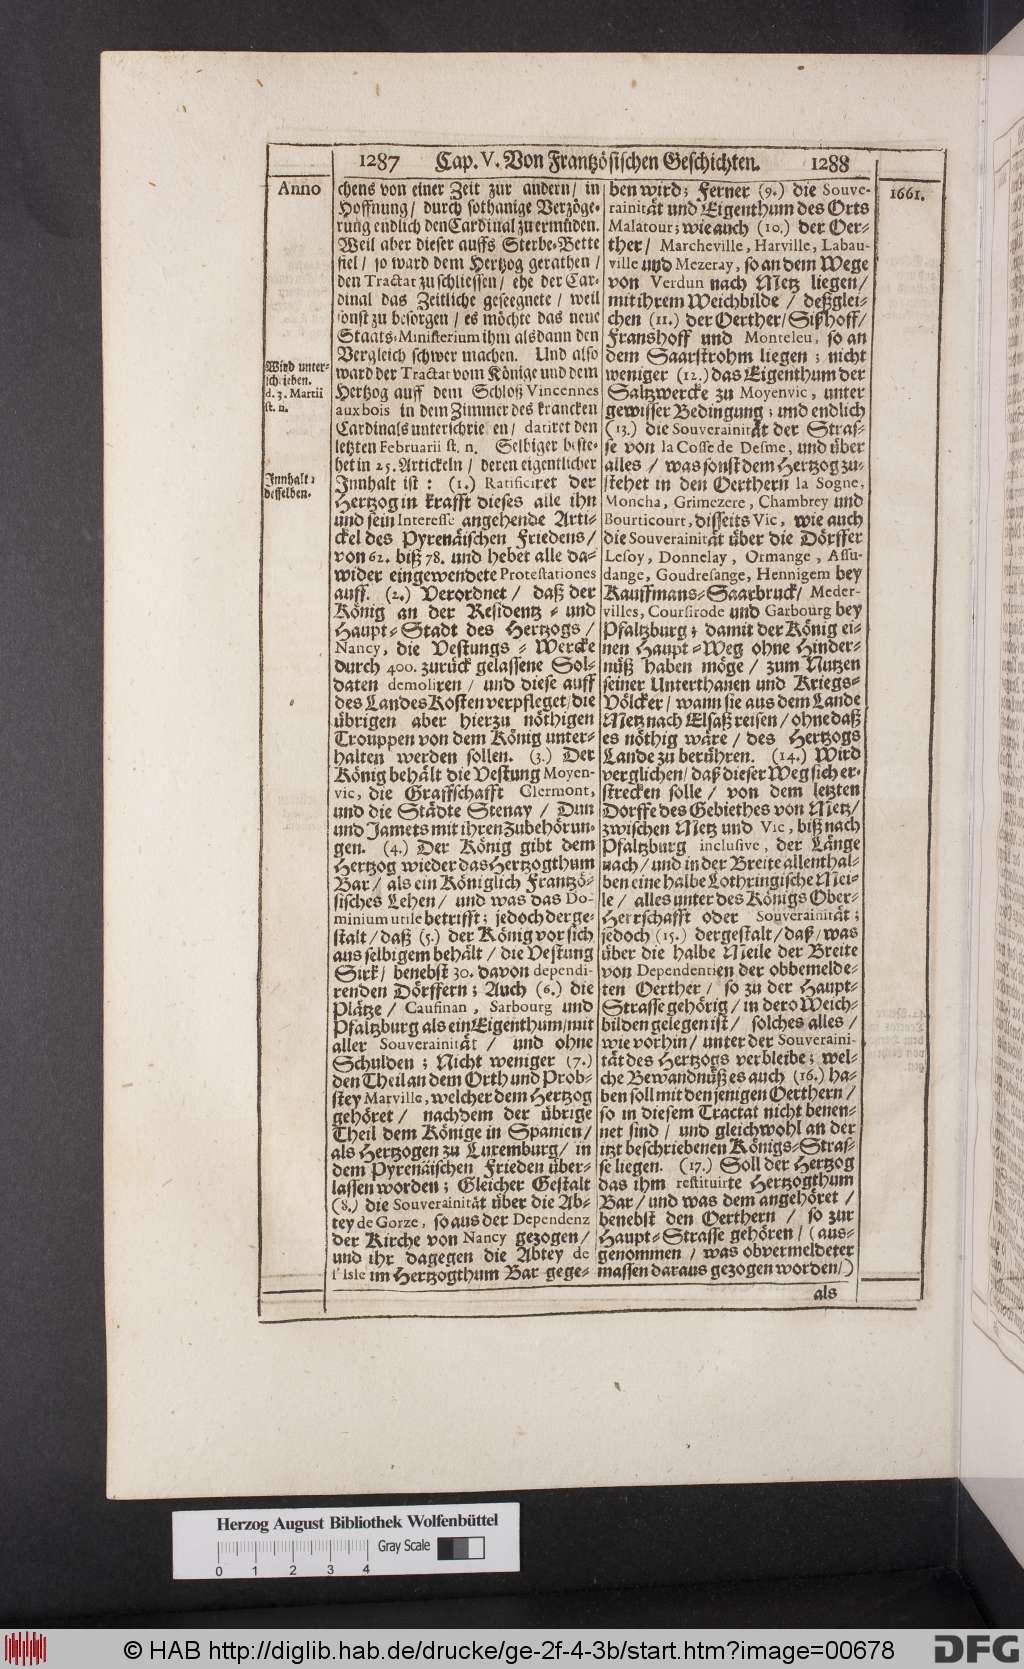 1287 Cap. V. Von Frantzösischen Geschichten. 1288
Anno
1661.
chens von einer Zeit zur andern/ in
Hoffnung/ durch sothanige Verzöge-
rung endlich den Cardinal zu ermüden.
Weil aber dieser auffs Sterbe-Bette
fiel/ so ward dem Hertzog gerathen/
den Tractat zu schliessen/ ehe der Car-
dinal das Zeitliche geseegnete/ weil
sonst zu besorgen/ es möchte das neue
Staats-Ministerium ihm alsdann den
Vergleich schwer machen. Und also
ward der Tractat vom Könige und dem
Hertzog auff dem Schloß Vincennes
aux bois in dem Zimmer des krancken
Cardinals unterschrieben/ datiret den
letzten Februarii st. n. Selbiger beste-
het in 25. Artickeln/ deren eigentlicher
Innhalt ist: (1.) Ratificiret der
Hertzog in krafft dieses alle ihn
und sein Interesse angehende Arti-
ckel des Pyrenäischen Friedens/
von 62. biß 78. und hebet alle da-
wider eingewendete Protestationes
auff. (2.) Verordnet/ daß der
König an der Residentz- und
Haupt-Stadt des Hertzogs/
Nancy, die Vestungs-Wercke
durch 400. zurück gelassene Sol-
daten demoliren/ und diese auff
des Landes Kosten verpfleget/ die
übrigen aber hierzu nöthigen
Trouppen von dem König unter-
halten werden sollen. (3.) Der
König behält die Vestung Moyen-
vic, die Graffschafft Clermont,
und die Städte Stenay/ Dun
und Jamets mit ihren Zubehörun-
gen. (4.) Der König gibt dem
Hertzog wieder das Hertzogthum
Bar/ als ein Königlich Frantzö-
sisches Lehen/ und was das Do-
minium utile betrifft; jedoch derge-
stalt/ daß (5.) der König vor sich
aus selbigem behält/ die Vestung
Sirk/ benebst 30. davon dependi-
renden Dörffern; Auch (6.) die
Plätze/ Caufinan, Sarbourg und
Pfaltzburg als ein Eigenthum/ mit
aller Souverainität/ und ohne
Schulden; Nicht weniger (7.)
den Theil an dem Orth und Prob-
stey Marville, welcher dem Hertzog
gehöret/ nachdem der übrige
Theil dem Könige in Spanien/
als Hertzogen zu Luxemburg/ in
dem Pyrenäischen Frieden über-
lassen worden; Gleicher Gestalt
(8.) die Souverainität über die Ab-
tey de Gorze, so aus der Dependenz
der Kirche von Nancy gezogen/
und ihr dagegen die Abtey de
l'Isle im Hertzogthum Bar gege-
Wird unter-
schrieben.
d. 3. Martii
st. n.
Innhalt
desselben.
ben wird; Ferner (9.) die Souve-
rainität und Eigenthum des Orts
Malatour; wie auch (10.) der Oer-
ther/ Marcheville, Harville, Labau-
ville und Mezeray, so an dem Wege
von Verdun nach Metz liegen/
mit ihrem Weichbilde/ deßglei-
chen (11.) der Oerther/ Sißhoff/
Franshoff und Monteleu, so an
dem Saarstrohm liegen; nicht
weniger (12.) das Eigenthum der
Saltzwercke zu Moyenvic, unter
gewisser Bedingung; und endlich
(13.) die Souverainität der Stras-
se von la Cosse de Desme, und über
alles/ was sonst dem Hertzog zu-
stehet in den Oerthern la Sogne,
Moncha, Grimezere, Chambrey und
Bourticourt, disseits Vic, wie auch
die Souverainität über die Dörffer
Lesoy, Donnelay, Ormange, Assu-
dange, Goudresange, Hennigem bey
Kauffmans-Saarbruck/ Meder-
villes, Coursirode und Garbourg bey
Pfaltzburg; damit der König ei-
nen Haupt-Weg ohne Hinder-
nüß haben möge/ zum Nutzen
seiner Unterthanen und Kriegs-
Völcker/ wann sie aus dem Lande
Metz nach Elsaß reisen/ ohne daß
es nöthig wäre/ des Hertzogs
Lande zu berühren. (14.) Wird
verglichen/ daß dieser Weg sich er-
strecken solle/ von dem letzten
Dorffe des Gebiethes von Metz/
zwischen Metz und Vic, biß nach
Pfaltzburg inclusive, der Länge
nach/ und in der Breite allenthal-
ben eine halbe Lothringische Mei-
le/ alles unter des Königs Ober-
Herrschafft oder Souverainität;
jedoch (15.) dergestalt/ daß/ was
über die halbe Meile der Breite
von Dependentien der obbemelde-
ten Oerther/ so zu der Haupt-
Strasse gehörig/ in dero Weich-
bilden gelegen ist/ solches alles/
wie vorhin/ unter der Souveraini-
tät des Hertzogs verbleibe; wel-
che Bewandnüß es auch (16.) ha-
ben soll mit den jenigen Oerthern/
so in diesem Tractat nicht benen-
net sind/ und gleichwohl an der
itzt beschriebenen Königs-Stras-
se liegen. (17.) Soll der Hertzog
das ihm restituirte Hertzogthum
Bar/ und was dem angehöret/
benebst den Oerthern/ so zur
Haupt-Strasse gehören/ (aus-
genommen/ was obvermeldeter
massen daraus gezogen worden/)
als
Herzog August Bibliothek Wolfenbüttel
0 1 2 3 4 Gray Scale
© HAB http://diglib.hab.de/drucke/ge-2f-4-3b/start.htm?image=00678
DFG